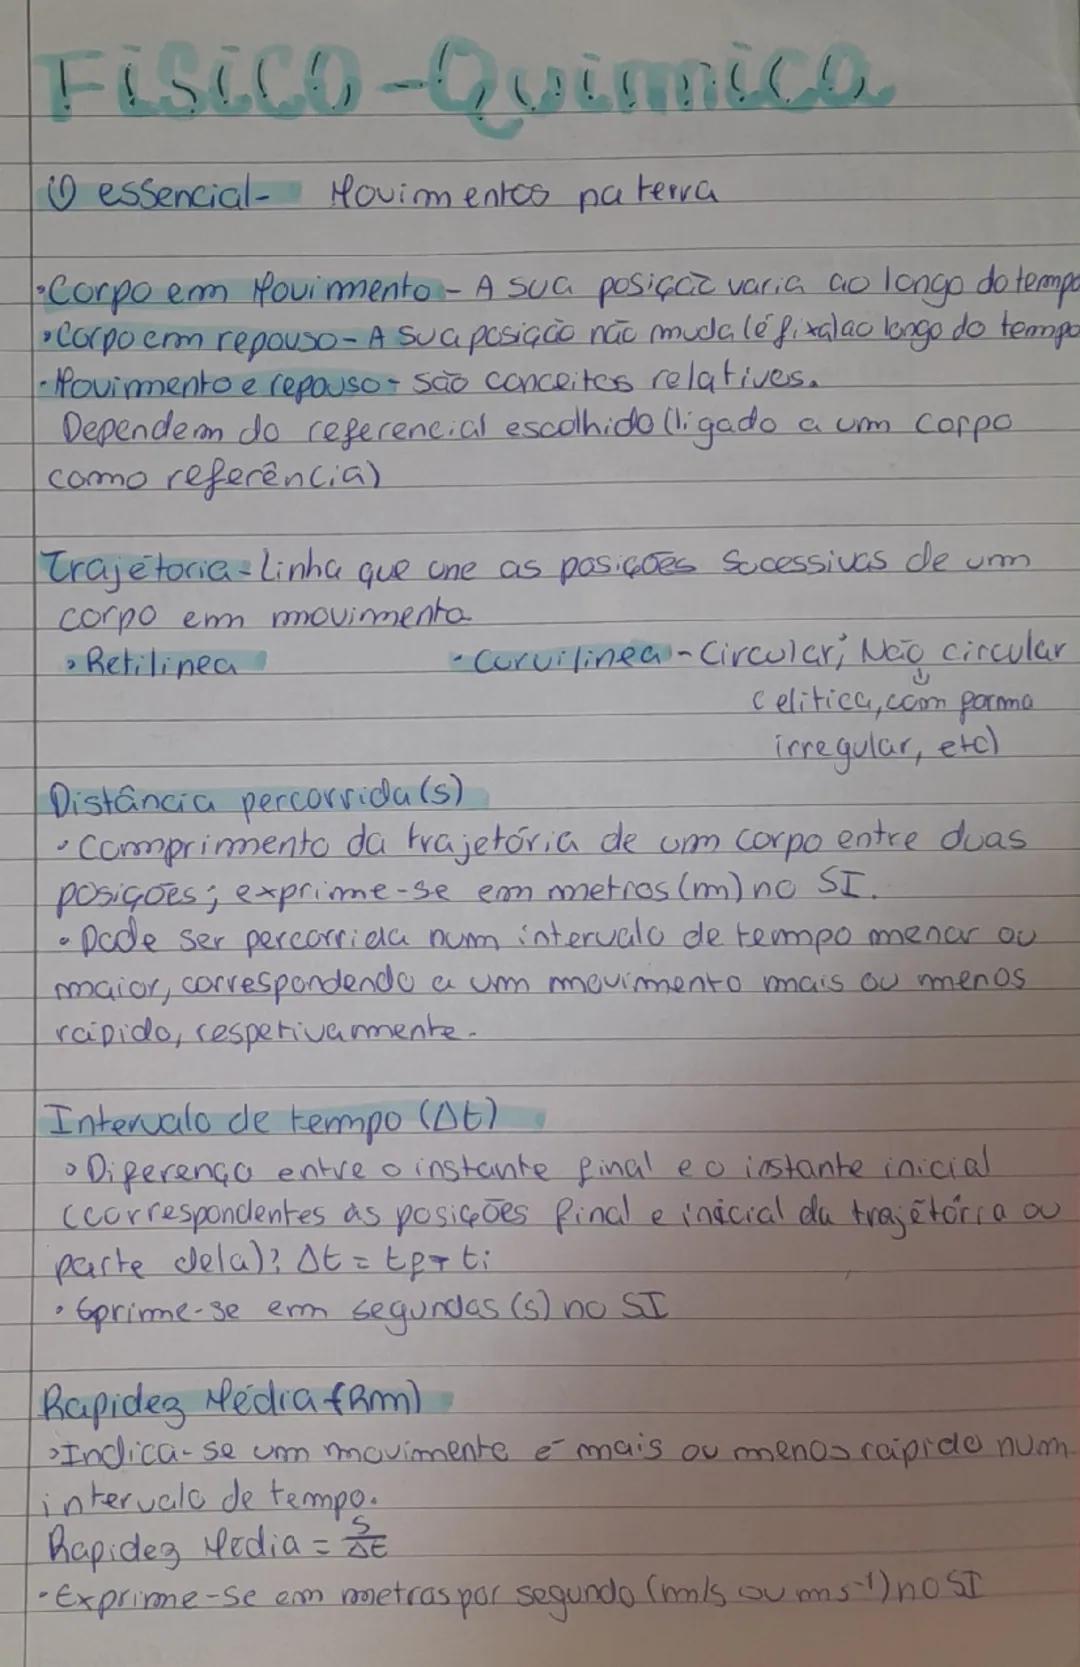 Fisico-Quimica
O essencial- Movimentos na terra
•Corpo em Movimento - A sua posição varia ao longo do tempo
•Corpo em repouso - A sua posição não muda (é fixa) ao longo do tempo
•Movimento e repouso - são conceitos relatives.
Dependem do referencial escolhido (ligado a um corpo
como referência)
Trajétoria - linha que une as posições sucessivas de um
corpo em movimento
•Retilinea •Curvilinea - Circular; Não circular
↓
(elitica, com forma
irregular, etc)
Distância percorrida (s)
•Comprimento da trajetória de um corpo entre duas
posições; exprime-se em metros (m) no SI.
•Pode ser percorrida num intervalo de tempo menor ou
maior, correspondendo a um movimento mais ou menos
rápido, respetivamente.
Intervalo de tempo (Δt)
•Diferença entre o instante final e o instante inicial
(correspondentes às posições final e inicial da trajétória ou
parte dela): Δt = tf - ti
•Exprime-se em segundos (s) no SI
Rapidez Média (Rm)
•Indica-se um movimente é mais ou menos rápido num
intervalo de tempo.
Rapidez Media = s/Δt
•Exprime-se em metros por segundo (m/s ou ms⁻¹) no SI